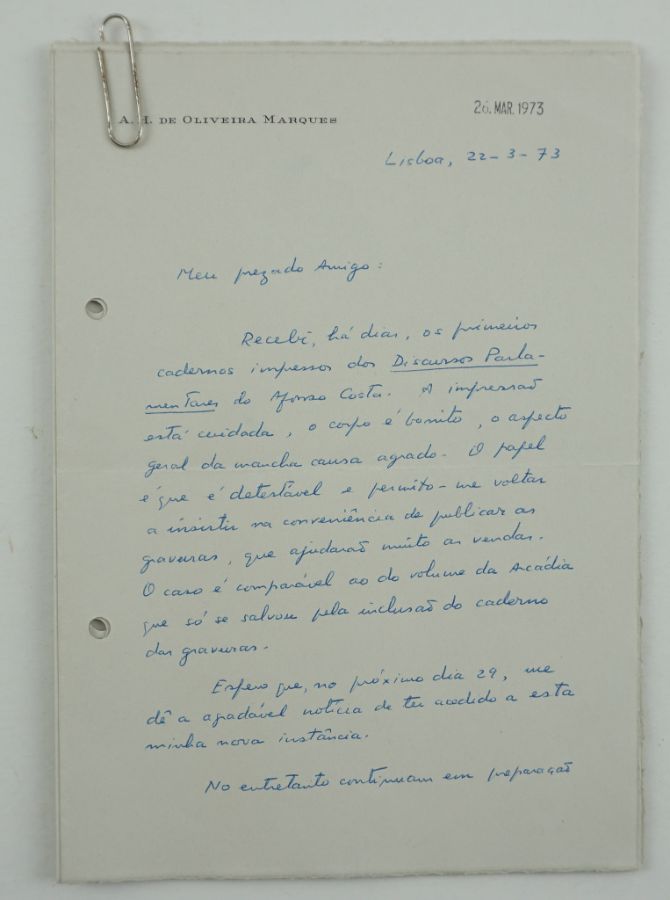 A. H. DE OLIVEIRA MARQUES
26. MAR. 1973
Lisboa, 22-3-73
Meu prezado Amigo:
Recebi, há dias, os primeiros
cadernos impressos dos Discursos Parla-
mentares do Afonso Costa. A impressão
está cuidada, o corpo é bonito, o aspecto
geral da mancha causa agrado. O papel
é que é detestável e permito-me voltar
a insistir na conveniência de publicar as
gravuras, que ajudarão muito as vendas.
O caso é comparável ao do volume da Arcádia
que só se salvou pela inclusão do caderno
das gravuras.
Espero que, no próximo dia 29, me
dê a agradável notícia de ter acedido a esta
minha nova instância.
No entretanto continuam em preparação